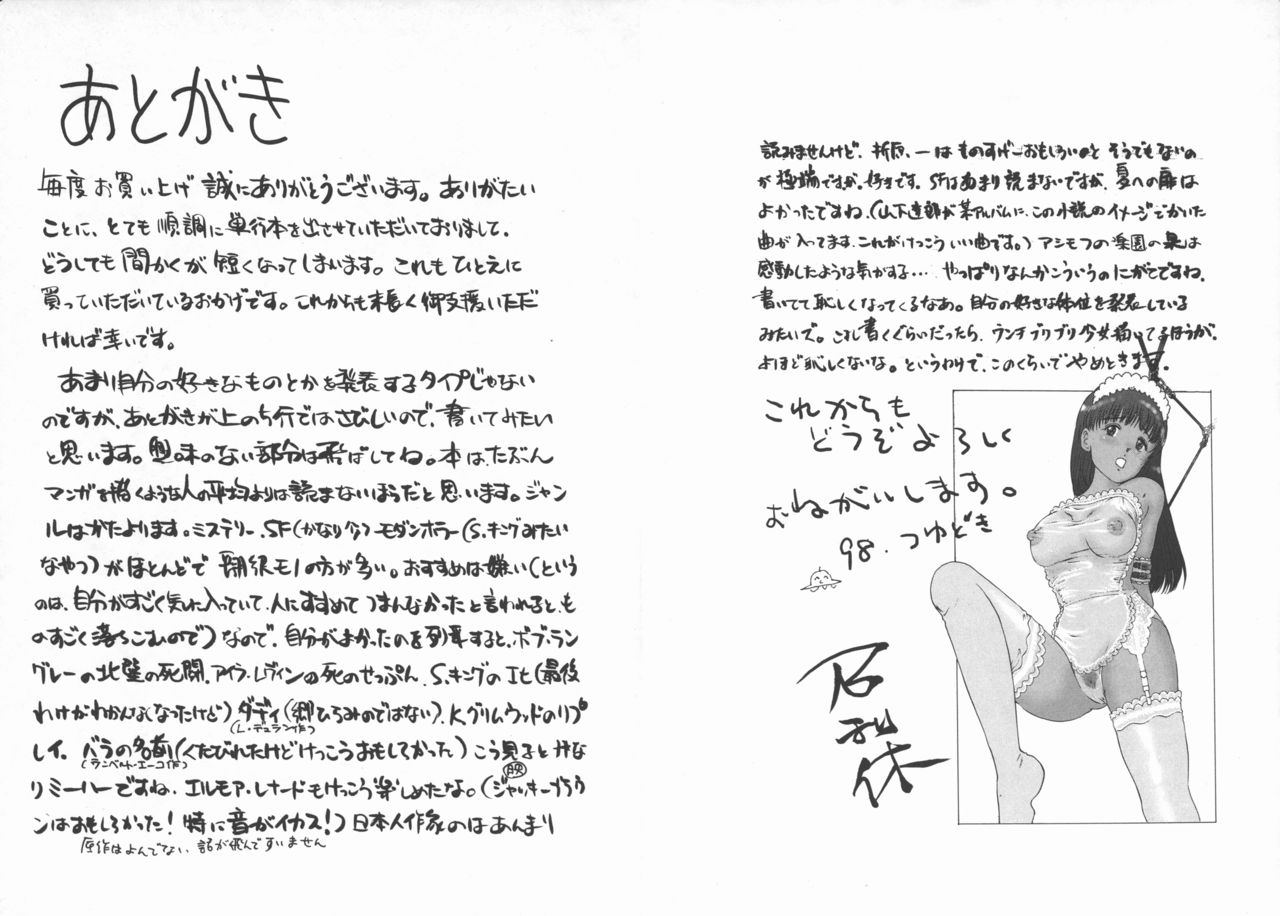 あとがき
毎度お買い上げ誠にありがとうございます。ありがたい
ことに、とても順調に単行本を出させていただいておりまして、
どうしても間かくが短くなってしまいます。これもひとえに
買っていただいているおかげです。これからも末長く御支援いただ
ければ幸いです。
あまり自分の好きなものとかを発表するタイプじゃない
のですが、あとがきが上の5行ではさびしいので、書いてみたい
と思います。興味のない部分は飛ばしてね。本は、たぶん
マンガを描くような人の平均よりは読まないほうだと思います。ジャン
ルはかたよります。ミステリー、SF(かなり少)モダンホラー(S.キングみたい
なやつ)がほとんどで翻訳モノの方が多い。おすすめは嫌い(という
のは、自分がすごく気に入っていて、人にすすめてつまんなかったと言われると、も
のすごく落ちこむので)なので、自分がよかったのを列挙すると、ボブ・ラン
グレーの北壁の死闘、アイラ・レヴィンの死のせっぷん、S.キングのIt(最後
わけがわかんなくなったけど)ダディ(郷ひろみのではない)、K.グリムウッドのリプ
(L・デュラン作)
レイ、バラの名前(くたびれたけどけっこうおもしろかった)こう見るとかな
(ランベルト・エーコ作)
りミーハーですね、エルモア・レナードもけっこう楽しめたな。(映ジャッキーブラウ
ンはおもしろかった!特に音がイカス!)日本人作家のはあんまり
原作はよんでない 話が飛んですいません
読みませんけど、折原、一はものすげーおもしろいのとそうでもないの
が極端ですが、好きです。SFはあまり読まないですが、夏への扉は
よかったですね。(山下達郎が某アルバムに、この小説のイメージでかいた
曲が入ってます、これがけっこういい曲です。)アシモフの楽園の泉は
感動したような気がする…やっぱりなんかこういうのにがてですね。
書いてて恥しくなってくるなあ。自分の好きな体位を発表している
みたいで。これ書くぐらいだったら、ウンチブリブリ少女描いてるほうが、
よほど恥しくないな。というわけで、このくらいでやめときます。
これからも
どうぞよろしく
おねがいします。
98.つゆどき